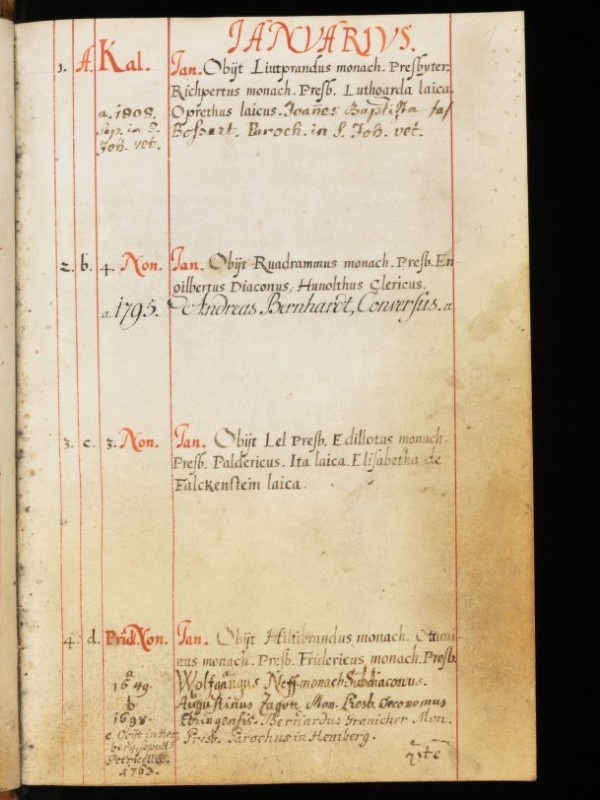 IANVARIVS.
1. A. Kal. Ian. Obijt Liutprandus monach. Presbyter.
Richpertus monach. Presb. Luthgarda laica
a. 1808. Oprethus laicus. Joañes Baptista
sep. in S. Bossart. Paroch. in S. Joh. vet.
Joh. vet.
2. b. 4. Non. Ian. Obijt Ruadrammus monach. Presb. En-
gilbertus Diaconus, Hunolthus Clericus.
a. 1795. Andreas Bernhardt, Conversus. a
3. c. 3. Non. Ian. Obijt Lel Presb. Edillotus monach.
Presb. Paldericus. Ita laica. Elisabetha de
Falckenstein laica.
4. d. Prid. Non. Ian. Obijt Hiltibrandus monach.
nus monach. Presb. Fridericus monach. Presb.
a
1649. Wolfgangus Neff monach Subdiaconus.
b
Augustinus Zagon Mon. Presb. Oeconomus
1698. Ebringensis. Bernardus Franicher Mon.
c. Obijt in Hem
Presb. Parochus in Hemberg.
berg, sepult
1763.